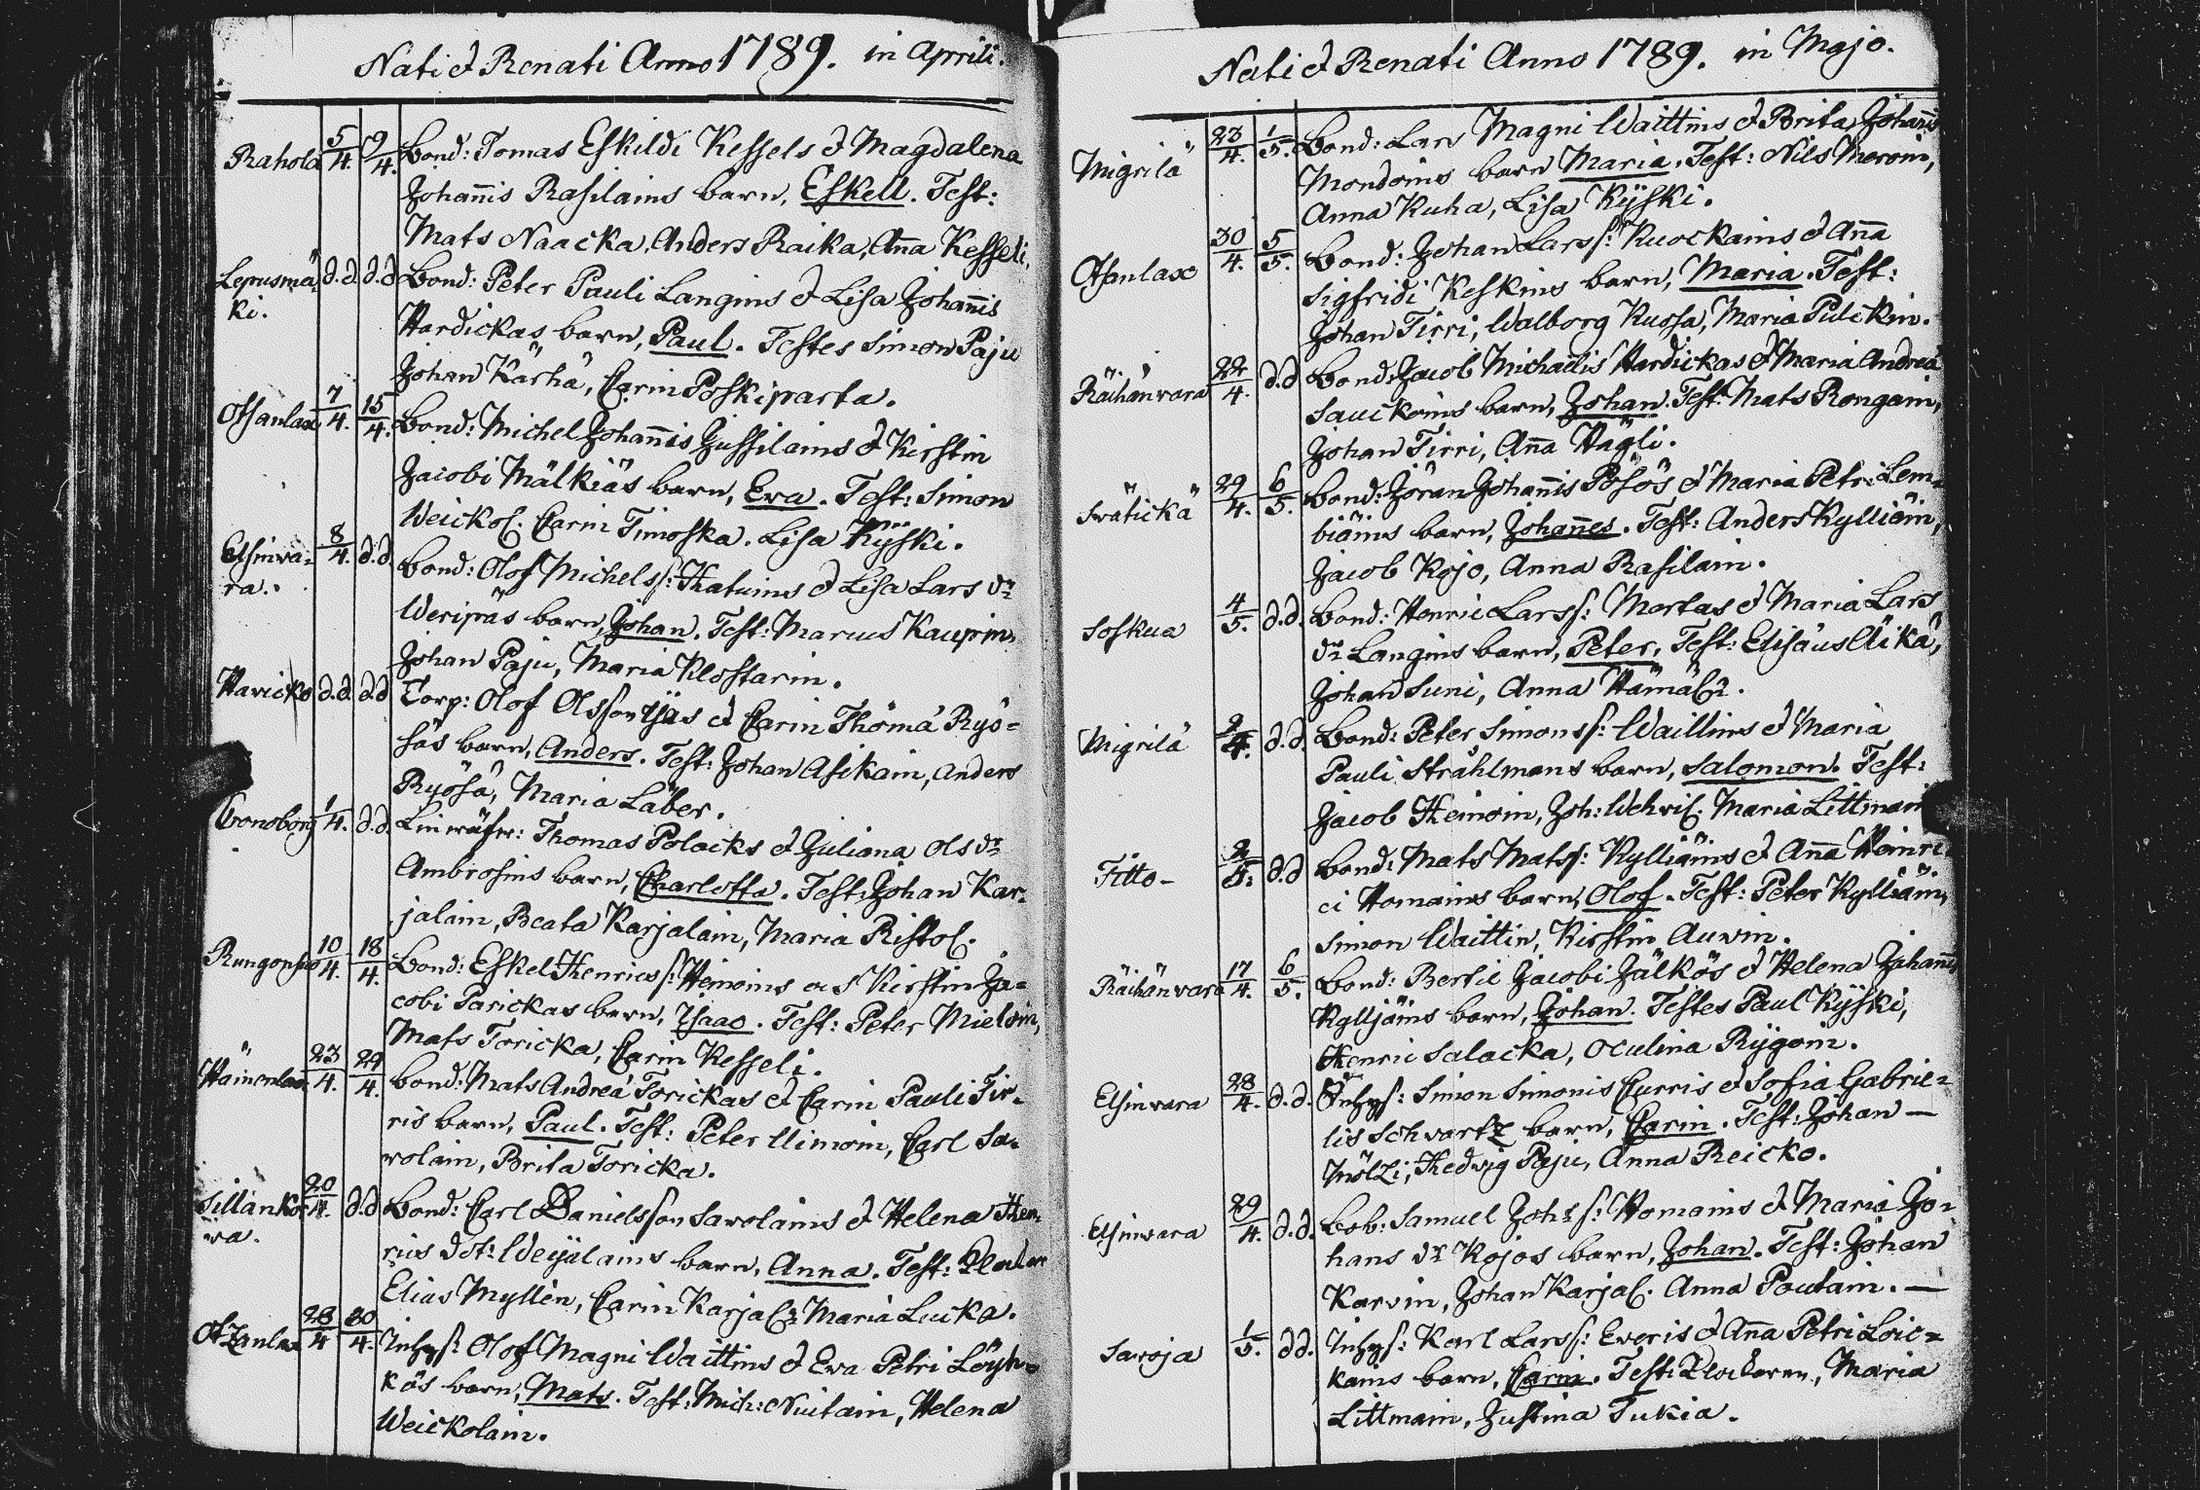 Nati & Renati Anno 1789. in Aprili.
Rahola 5/4 9/4. Bond: Tomas Eskildi Kessels & Magdalena
Johan̄is Rasilains barn, Eskell. Test:
Mats Naacka, Anders Raika, An̄a Kesseli.
Lepusmä= d.d. d.d. Bond: Peter Pauli Langins & Lisa Johan̄is
ki. Hardickas barn, Paul. Testes Simon Paju
Johan Kärhä, Carin Poskiparta.
Otsanlax 7/4. 15/4. Bond: Michel Johan̄is Jussilains & Kirstin
Jacobi Mälkiäs barn, Eva. Test: Simon
Weickol. Carin Timoska. Lisa Kyski.
Elsinva= 8/4. d.d. Bond: Olof Michelss: Hatuins & Lisa Lars dr
ra. Weripäs barn, Johan. Test: Marcus Kaupin,
Johan Paju, Maria Klostarin.
Haricko d.d. d.d Torp: Olof Olsson Yjäs & Carin Thomä Ryö=
säs barn, Anders. Test: Johan Asikain, Anders
Ryösä, Maria Läber.
Cronoborg 1/4. d.d. Linwäfw: Thomas Polacks & Juliana Ols dr
Ambrosins barn, Charlotta. Test: Johan Kar=
jalain, Beata Karjalain, Maria Ristol.
Rungonsuo 10/4. 18/4. Bond: Eskel Henricss: Heinoins och Kirstin Ja=
cobi Parickas barn, Isaac. Test: Peter Mieloin,
Mats Toricka, Carin Kesseli.
Häinenlax 23/4. 29/4. Bond: Mats Andreä Torickas & Carin Pauli Tir=
ris barn, Paul. Test: Peter Uimoin, Carl Sa=
volain, Brita Toricka.
Sillänkor= 20/4. d.d Bond: Carl Danielsson Savolains & Helena Hen=
wa. rics dot: Weijalains barn, Anna. Test:
Elias Myllen, Carin Karjal: Maria Lucka.
Otzanlax 28/4 30/4. Inhys: Olof Magni Waittins & Eva Petri Löyh=
kös barn, Mats. Test: Mich: Nuitain, Helena
Weickolain.
Nati & Renati Anno 1789. in Majo.
Migrilä 23/4. 1/5. Bond: Lars Magni Waittins & Brita Johan̄is
Mondoins barn Maria. Test: Nils Meroin,
Anna Kuha, Lisa Kyski.
Otsanlax 30/4. 5/5. Bond: Johan Larss: Kuockains & An̄a
Sigfridi Keskins barn, Maria. Test:
Johan Tirri, Walborg Kussa, Maria Pulckin.
Räihänvara 22/4. d.d Bond: Jacob Michaelis Hardickas & Maria Andreä
Sauckoins barn, Johan. Test: Mats Rongain,
Johan Tirri, An̄a Hägli.
Svätickä 29/4. 6/5. Bond: Jöran Johan̄is Pösös & Maria Petri Lem=
biäins barn, Johan̄es. Test: Anders Kylliäin,
Jacob Kojo, Anna Rasilain.
Soskua 4/5. d.d. Bond: Henric Larss: Martas & Maria Lars
dr Langins barn, Peter. Test: Elisäus Aikä,
Johan Suni, Anna Hämäl:
Migrilä 2/4. d.d. Bond: Peter Simonss: Waillins & Maria
Pauli Stråhlmans barn, Salomon. Test:
Jacob Heinoin, Joh: Wehvil. Maria Littmain
Titto- 2/5. d.d Bond: Mats Matss: Kylliäins & Anna Heinri=
ci Homains barn, Olof. Test: Peter Kylliäin,
Simon Waittin, Kirstin Auvin.
Räihänvara 17/4. 6/5. Bond: Bertil Jacobi Jälkös & Helena Johan̄is
Kylljäins barn, Johan. Testes Paul Kyski,
Henric Salacka, Oculina Rygoin.
Elsinvara 28/4. d.d. Inhys: Simon Simonis Curris & Sofia Gabrie=
lis Schvartz barn, Carin. Test: Johan —
Mölzi, Hedvig Paju, Anna Reicko.
Elsinvara 29/4. d.d. Bob: Samuel Johs s: Homains & Maria Jo=
hans dr Kojos barn, Johan. Test: Johan
Karvin, Johan Karjal. Anna Pautain. —
Saroja 1/5. d.d. Inhys: Karl Larss: Everis & An̄a Petri Loic=
kains barn, Carin. Test: Maria
Littmain, Justina Tukia.